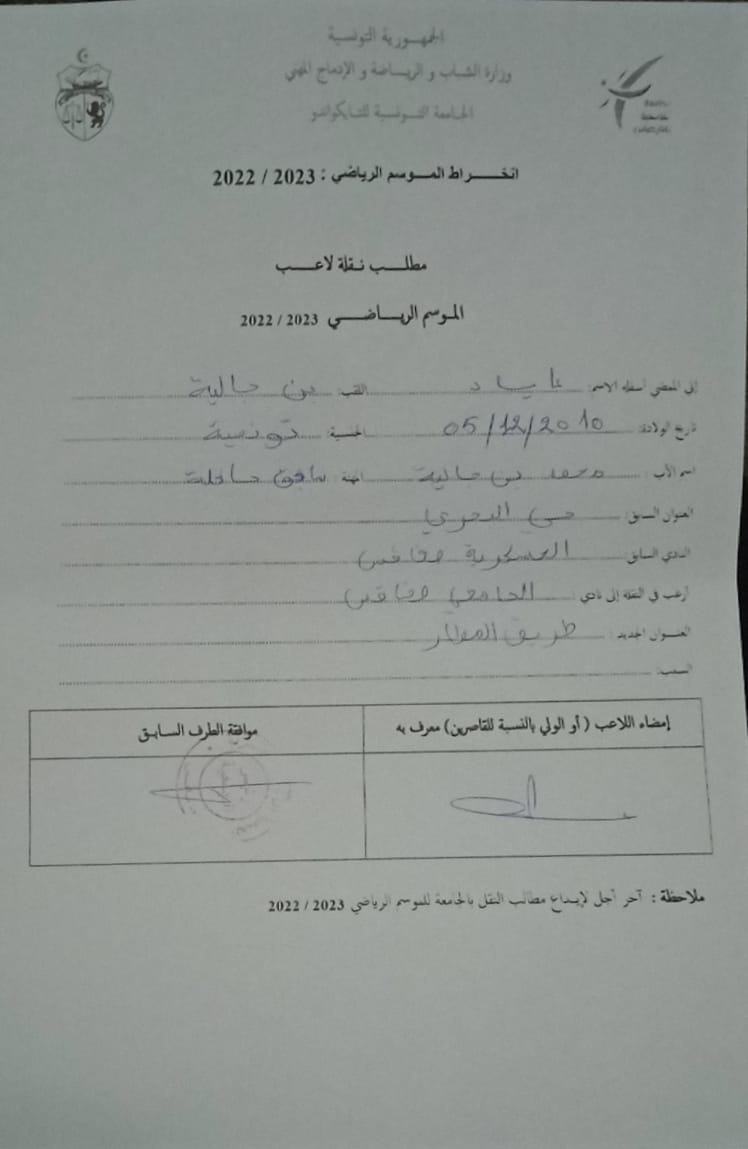 الجمهورية التونسية
وزارة الشباب و الرياضة و الإدماج المهني
الجامعة التونسية للتايكواندو
انخراط الموسم الرياضي : 2022 / 2023
مطلب نقلة لاعب
الموسم الرياضي 2022 / 2023
إني الممضي أسفله الاسم: اياد اللقب: بن حالية
تاريخ الولادة: 05/12/2010 الجنسية: تونسية
اسم الأب: محمد بن حالية المهنة: سائق حافلة
العنوان السابق: حي البحري
النادي السابق: العسكرية صفاقس
أرغب في النقلة إلى نادي: الجامعي صفاقس
العنوان الجديد: طريق المطار
السبب:
إمضاء اللاعب ( أو الولي بالنسبة للقاصرين) معرف به موافقة الطرف السابق
ملاحظة : آخر أجل لإيداع مطالب النقل بالجامعة للموسم الرياضي 2022 / 2023